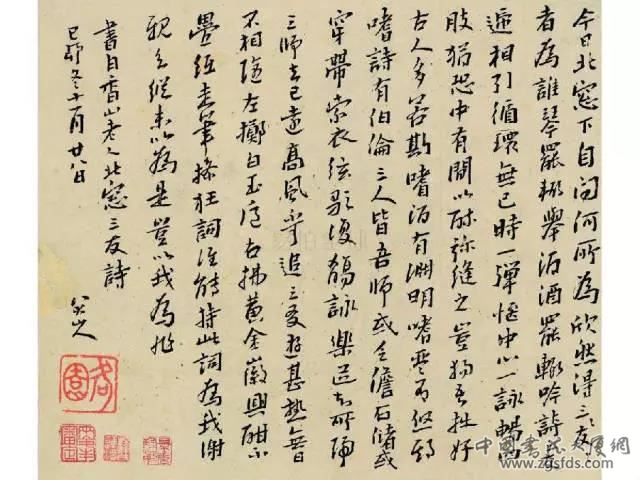 今日北窓下自问何所為欣然得三友三友
者為誰琴罷輒舉酒酒罷輒吟詩三友
遞相引循環無已時一彈愜中心一詠暢四
肢猶恐中有間以酣弥縫之豈獨吾拙好
古人多若斯嗜酒有淵明嗜琴有啓期
嗜詩有伯倫三人皆吾師或乏儋石儲或
穿帶索衣弦歌復觴詠樂道知所歸
三師去已遠高風不可追三友遊甚熟無日
不相随左擲白玉卮右拂黄金徽興酣不
疊紙走筆操狂詞誰能持此詞為我謝
親知縱未以為是豈以我為非
書白香山老人北窓三友詩
八大山人
己卯冬十一月廿八日
中国书法大厦网
www.zgsfds.com